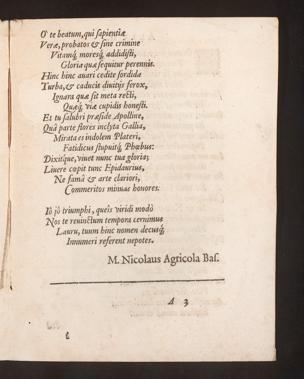 O te beatum, qui sapientiæ
Veræ, probatos & sine crimine
Vitamq́; moresq́; addidisti,
Gloria quæ sequitur perennis.
Hinc hinc auari cedite sordida
Turba, & caducis diuitijs ferox,
Ignara quæ sit meta recti,
Quæq́; viæ cupidis honesti.
Et tu salubri præside Apolline,
Quâ parte flores inclyta Gallia,
Mirata es indolem Plateri,
Fatidicus stupuitq́; Phœbus:
Dixitque, viuet nunc tua gloria;
Liuere copit tunc Epidaurius,
Ne famâ & arte clariori,
Commeritos minuas honores.
Iô jô triumphi, queîs viridi modò
Nos te reuinctum tempora cernimus
Lauru, tuum hinc nomen decusq́;
Innumeri referent nepotes.
M. Nicolaus Agricola Bas.
A 3